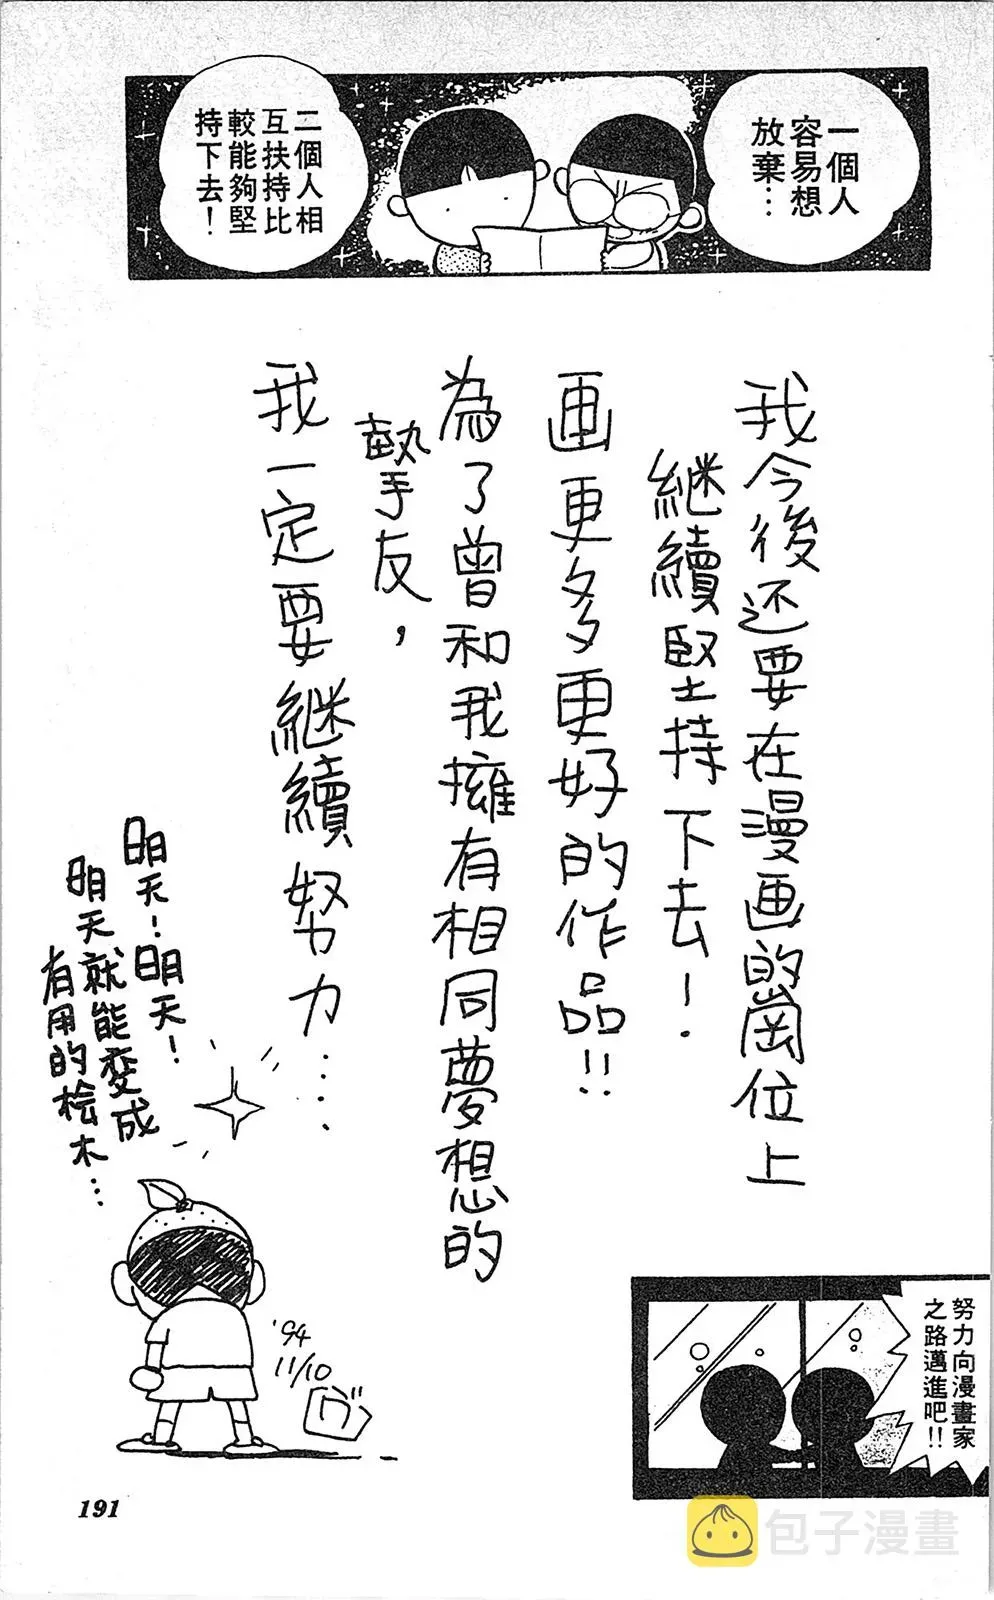 一個人
容易想
放棄…
二個人相
互扶持比
較能夠堅
持下去！
我今後还要在漫画的崗位上
繼續堅持下去！.
画更多更好的作品!!
為了曾和我擁有相同夢想的
摯友，
我一定要繼續努力……
明天！明天！
明天就能变成
有用的桧木…
'94
11/10
努力向漫畫家
之路邁進吧!!
191
包子漫畫